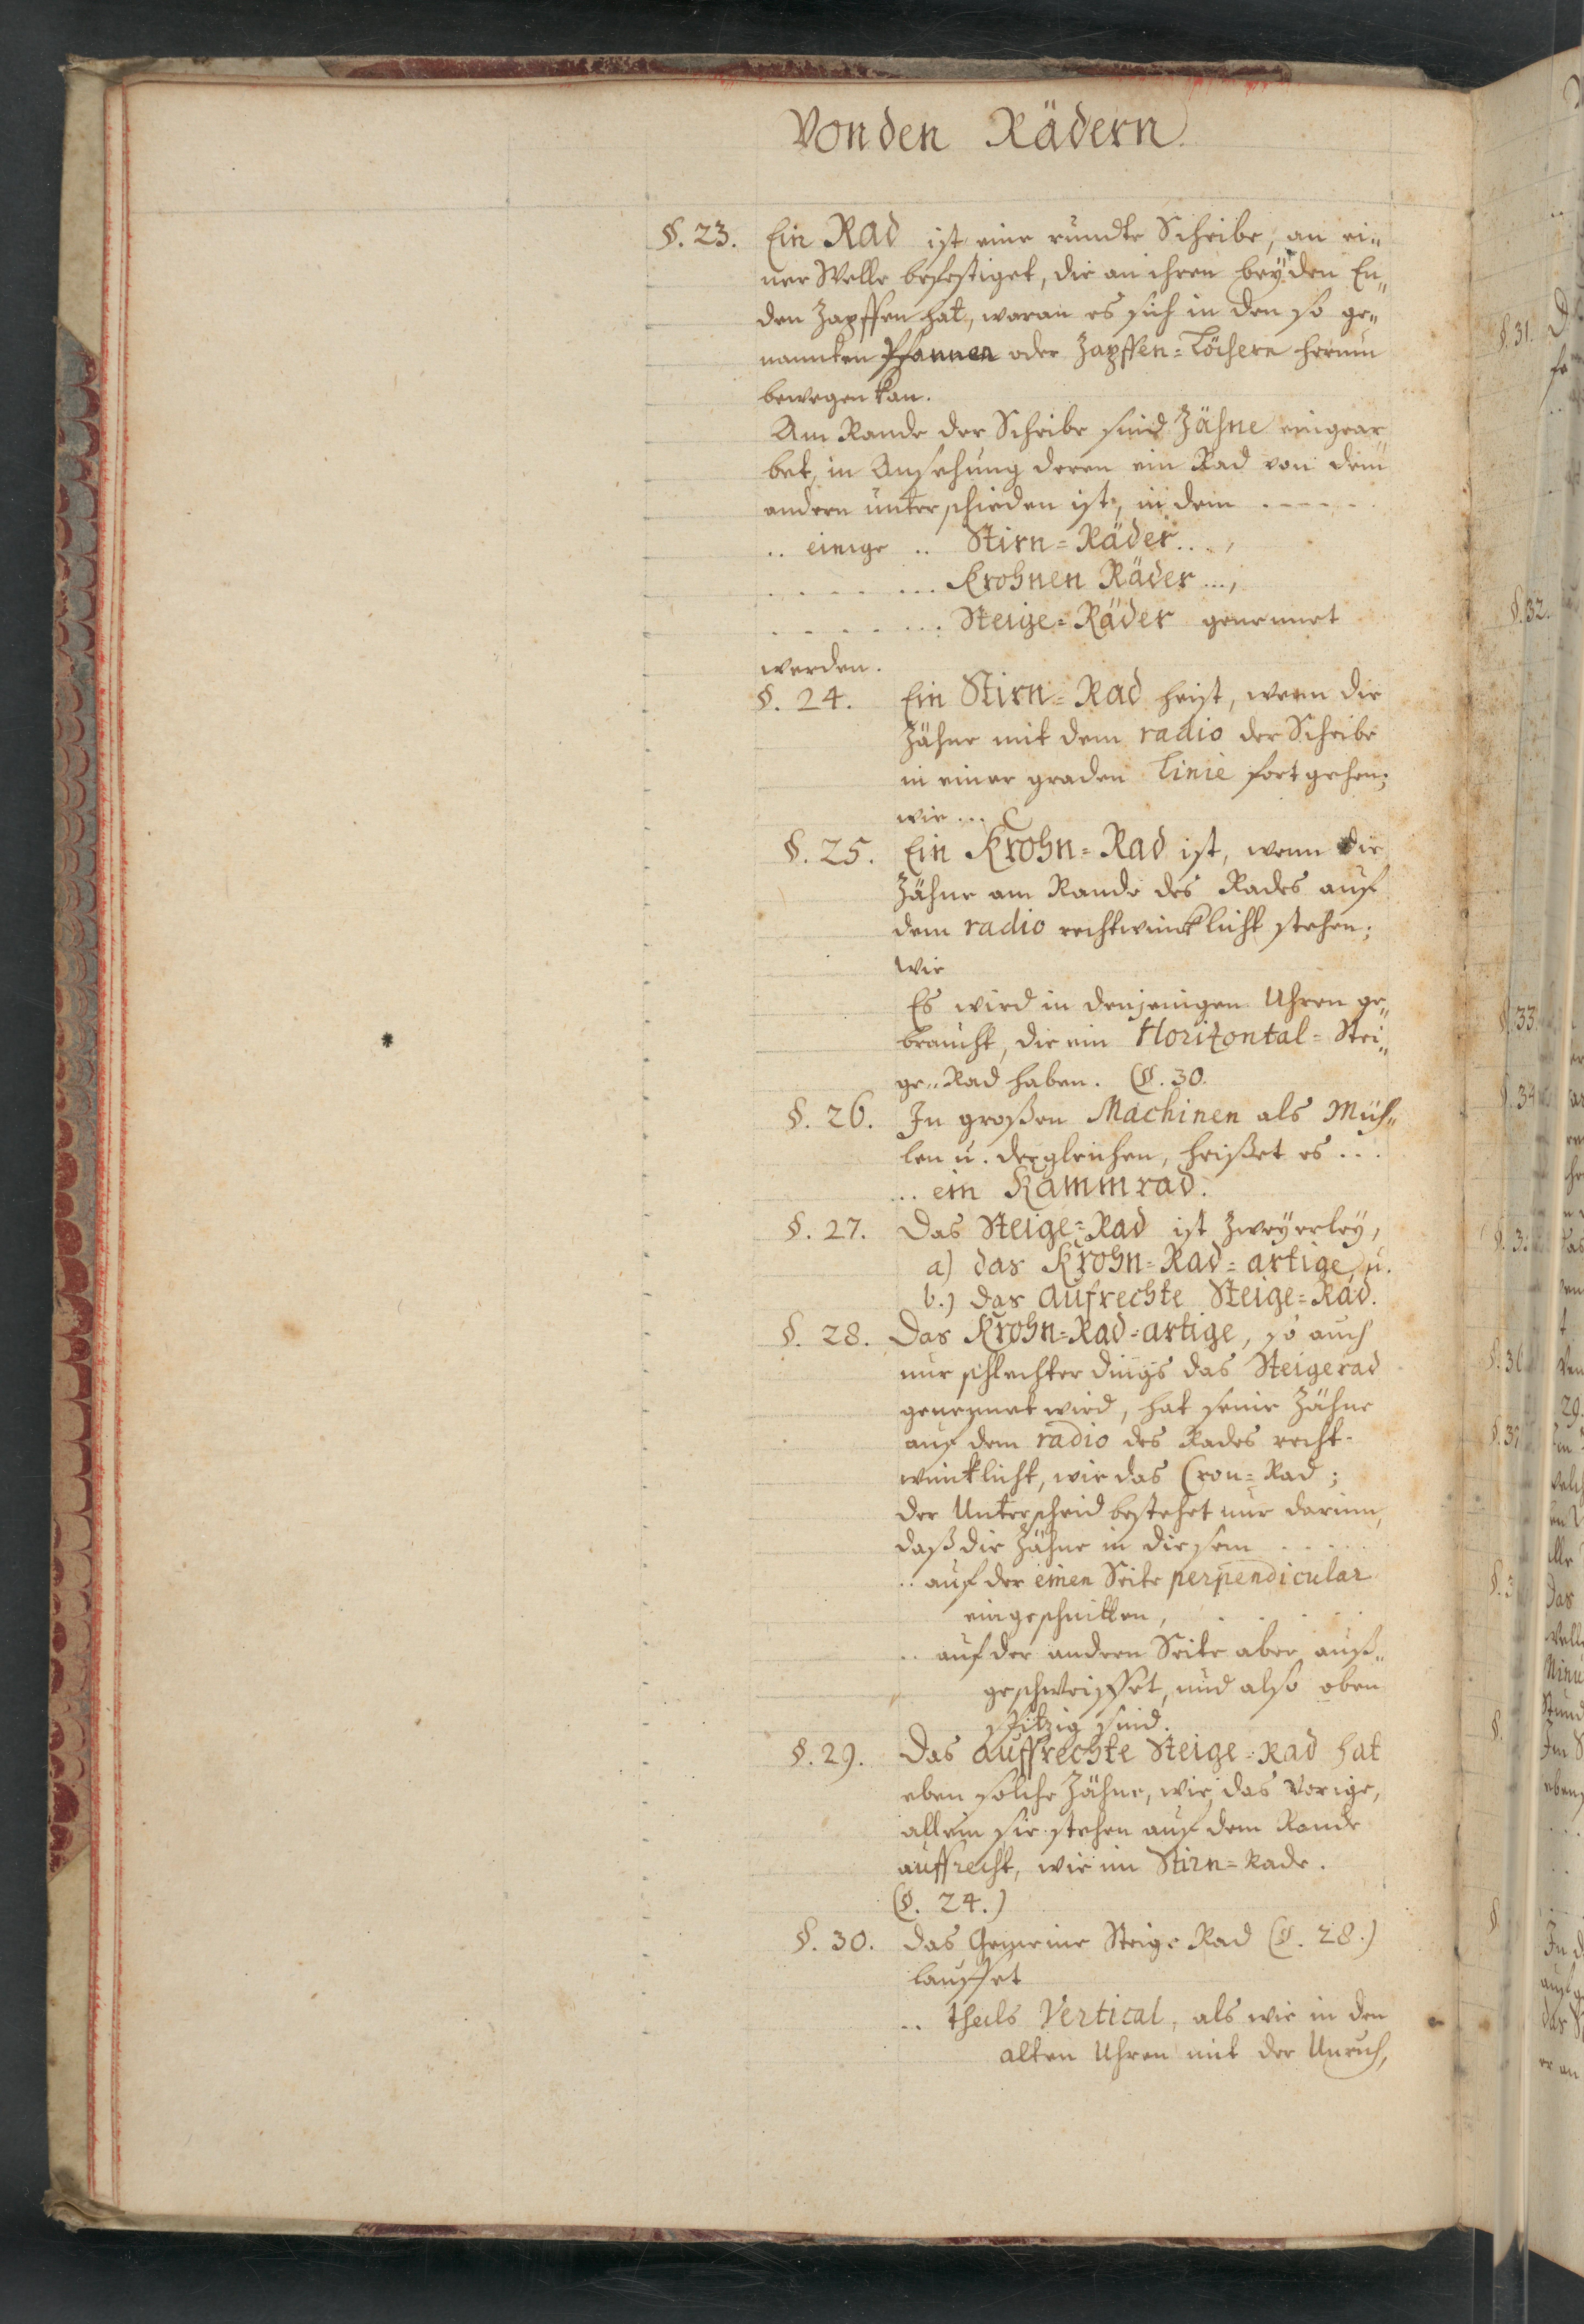 Von den Rädern.
§. 23. Ein Rad ist eine rundte Scheibe, an ei„
ner Welle befestiget, die an ihren beyden En„
den Zapffen hat, woran es sich in den so ge„
nannten Pfannen oder Zapffen=Löchern herum
bewegen kan.
Am Rande der Scheibe sind Zähne eingear„
bet, in Ansehung deren ein Rad von dem
andern unterschieden ist, in dem .....
.. einige .. Stirn=Räder....,
........ Krohnen Räder ...,
........ Steige=Räder genennet
werden.
§. 24. Ein Stirn=Rad heist, wenn die
Zähne mit dem radio der Scheibe
in einer graden Linie fort gehen;
wie ... C
§. 25. Ein Krohn=Rad ist, wenn die
Zähne am Rande des Rades auf
dem radio rechtwincklicht stehen;
wie
Es wird in denjenigen Uhren ge„
braucht, die ein Horizontal=Stei„
ge„Rad haben. (§. 30.
§. 26. In großen Machinen als Müh„
len u. dergleichen, heißet es ...
... ein Kammrad.
§. 27. Das Steige=Rad ist zweyerley,
a) das Krohn=Rad=artige, u.
b.) das aufrechte Steige=Rad.
§. 28. Das Krohn=Rad=artige, so auch
nur schlechter dings das Steigerad
genennet wird, hat seine Zähne
auf dem radio des Rades recht-
wincklicht, wie das Cron=Rad;
der Unterscheid bestehet nur darinn,
daß die Zähne in diesem .....
.. auf der einen Seite perpendicular
eingeschnitten, ....
.. auf der andern Seite aber auß„
geschweiffet, und also oben
spitzig sind.
§. 29. Das auffrechte Steige=Rad hat
eben solche Zähne, wie das Vorige,
allein sie stehen auf dem Rande
auffrecht, wie im Stirn=Rade.
(§. 24.)
§. 30. das Gemeine Steige Rad (§. 28.)
lauffet
.. theils Vertical, als wie in den
alten Uhren mit der Unruh,
§. 31.
§. 32.
§. 33.
§. 34
§. 36
§. 37